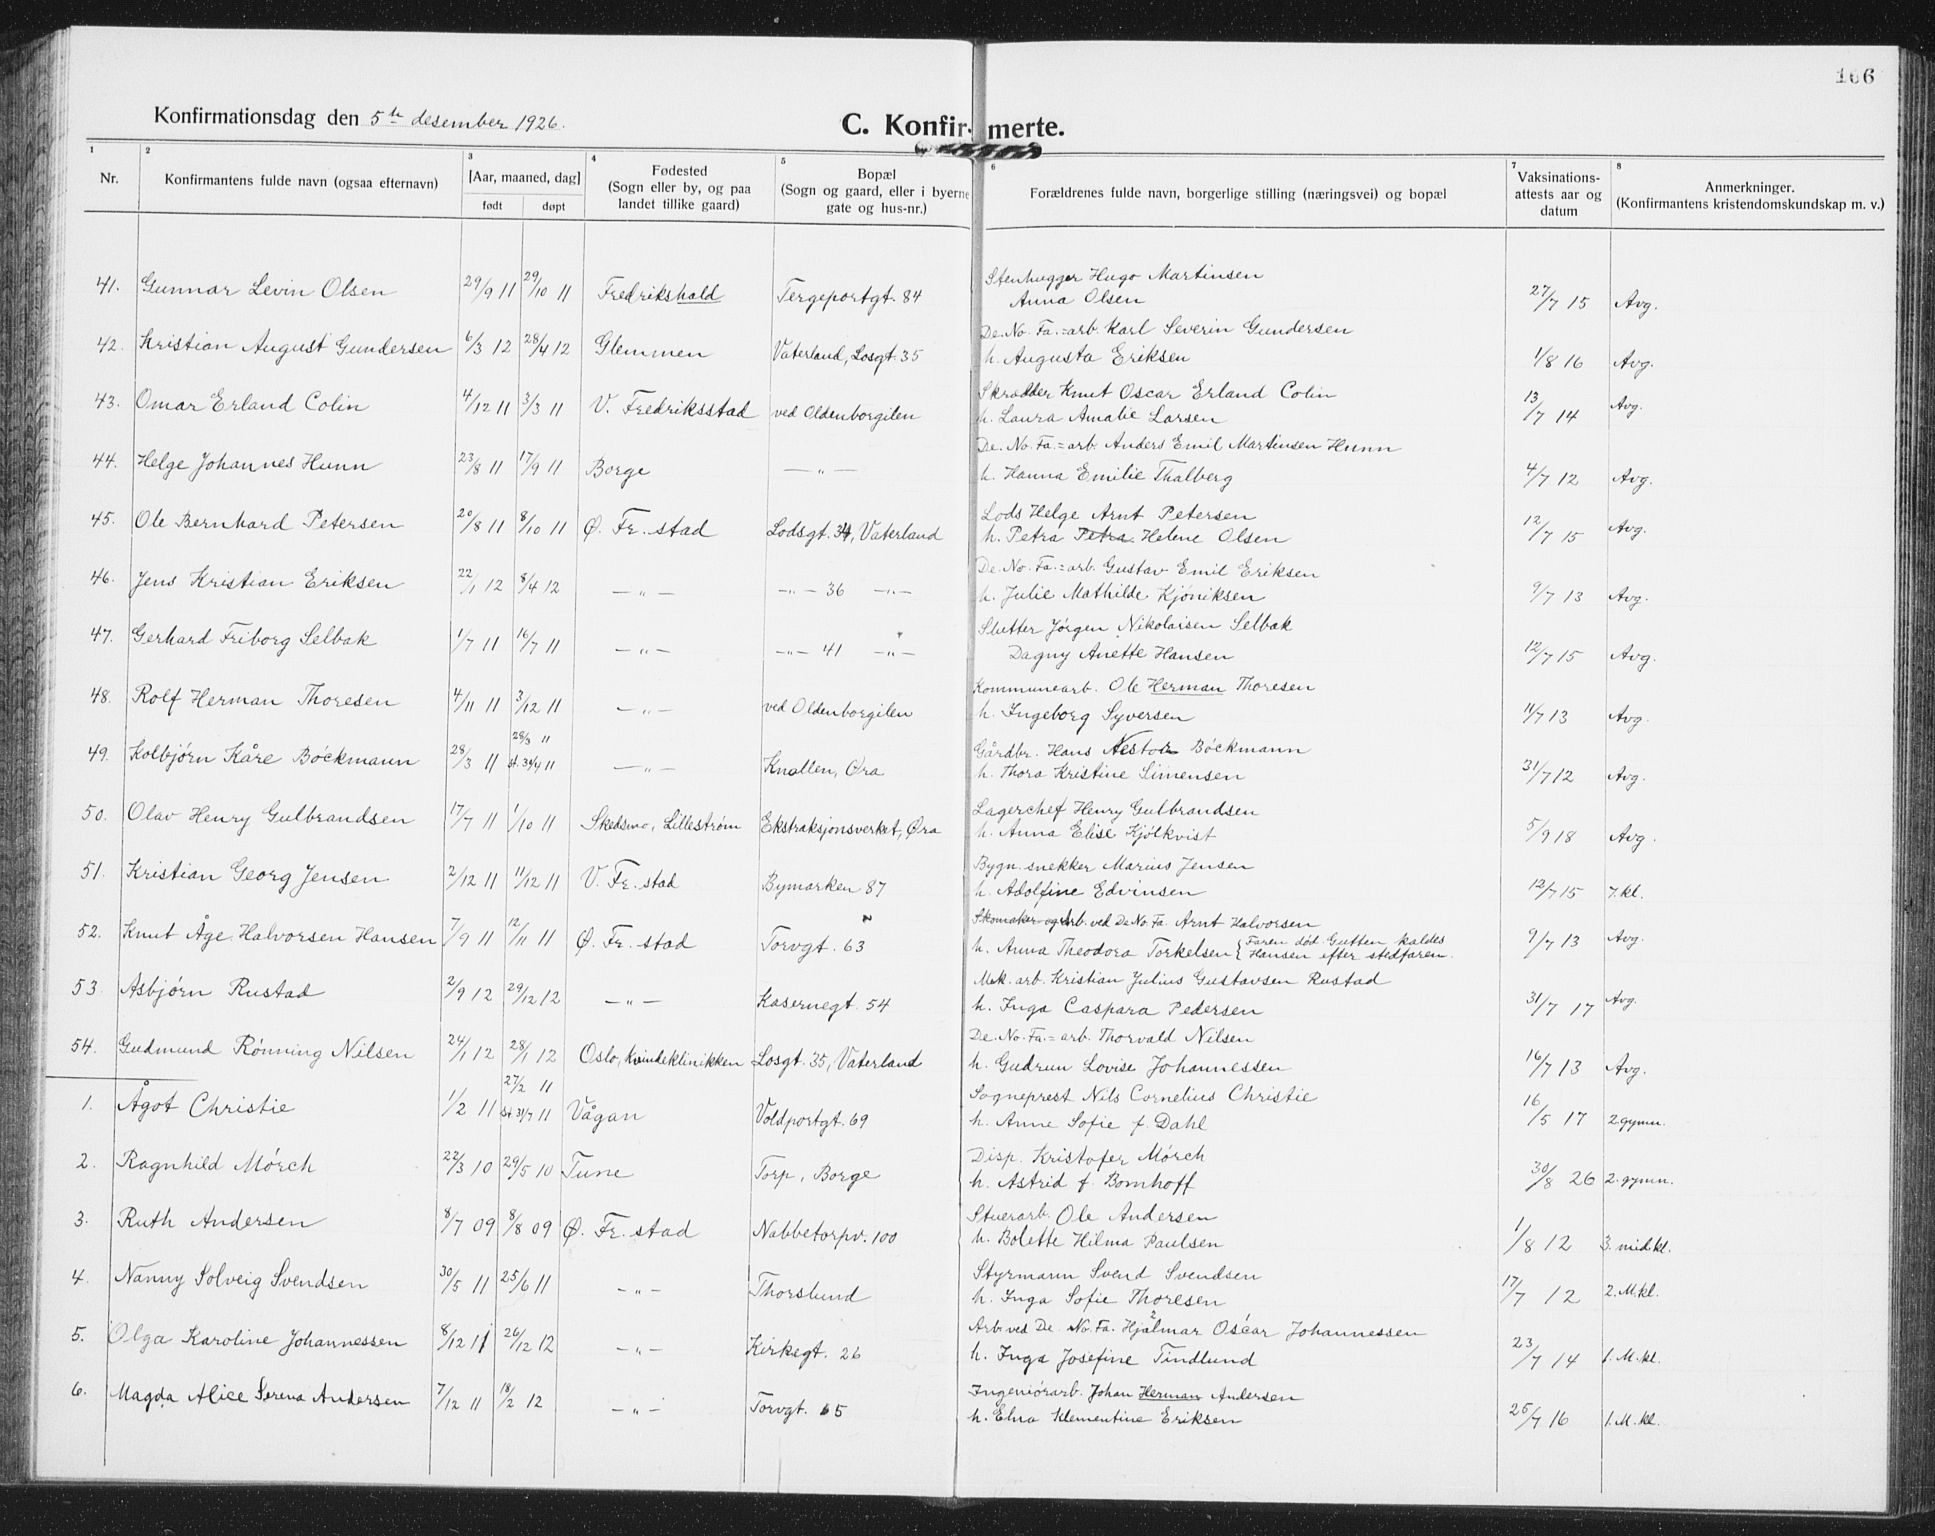 166
Konfirmationsdag den 5te desember 1926.
C. Konfirmerte.
1 2 3 4 5 6 7 8
Nr. Konfirmantens fulde navn (ogsaa efternavn) [Aar, maaned, dag] født døpt Fødested (Sogn eller by, og paa landet tillike gaard) Bopæl (Sogn og gaard, eller i byerne gate og hus-nr.) Forældrenes fulde navn, borgerlige stilling (næringsvei) og bopæl Vaksinations-attests aar og datum Anmerkninger. (Konfirmantens kristendomskundskap m. v.)
41. Gunnar Levin Olsen 29/9 11 29/10 11 Fredrikshald Tergeportgt. 84 Stenhugger Hugo Martinsen
Anna Olsen 27/7 15 Avg.
42. Kristian August Gundersen 6/3 12 28/4 12 Glemmen Vaterland, Losgt. 35 De. No. Fa.=arb. Karl Severin Gundersen
h. Augusta Eriksen 1/8 16 Avg.
43. Omar Erland Colin 4/12 11 3/3 11 V. Fredriksstad ved Oldenborgilen Skrædder Knut Oscar Erland Colin
h. Laura Amalie Larsen 13/7 14 Avg.
44. Helge Johannes Hunn 23/8 11 17/9 11 Borge — „ — De. No. Fa.=arb. Anders Emil Martinsen Hunn
h. Hanna Emilie Thalberg 4/7 12 Avg.
45. Ole Bernhard Petersen 20/8 11 8/10 11 Ø. Fr. stad Lodsgt. 34, Vaterland Lods Helge Arnt Petersen
h. Petra Petra Helene Olsen 12/7 15 Avg.
46. Jens Kristian Eriksen 22/1 12 8/4 12 — „ — — „ — 36 — „ — De. No. Fa.=arb. Gustav Emil Eriksen
h. Julie Mathilde Kjöniksen 9/7 13 Avg.
47. Gerhard Friborg Selbak 1/7 11 16/7 11 — „ — — „ — 41 — „ — Slutter Jørgen Nikolaisen Selbak
Dagny Anette Hansen 12/7 15 Avg.
48. Rolf Herman Thoresen 4/11 11 3/12 11 — „ — ved Oldenborgilen Kommunearb. Ole Herman Thoresen
h. Ingeborg Syversen 11/7 13 Avg.
49. Kolbjørn Kåre Böckmann 28/3 11 28/3 11 st. 30/4 11 — „ — Knollen, Øra Gårdbr. Hans Nestor Böckmann
h. Thora Kristine Simensen 31/7 12 Avg.
50. Olav Henry Gulbrandsen 17/7 11 1/10 11 Skedsmo, Lilleström Ekstraksjonsverket, Øra Lagerchef Henry Gulbrandsen
h. Anna Elise Kjölkvist 5/9 18 Avg.
51. Kristian Georg Jensen 2/12 11 11/12 11 V. Fr. stad Bymarken 87 Bygn. snekker Marius Jensen
h. Adolfine Edvinsen 12/7 15 7. kl.
52. Knut Åge Halvorsen Hansen 7/9 11 12/11 11 Ø. Fr. stad Torvgt. 63 Skomaker og Arb. ved De No. Fa. Arnt Halvorsen
h. Anna Theodora Torkelsen { Faren död. Gutten kaldes Hansen efter stedfaren. 9/7 13 Avg.
53. Asbjörn Rustad 2/9 12 29/12 12 — „ — Kasernegt. 54 Mek. arb. Kristian Julius Gustavsen Rustad
h. Inga Caspara Pedersen 31/7 17 Avg.
54. Gudmund Rönning Nilsen 24/1 12 28/1 12 Oslo, Kvindeklinikken Losgt. 35, Vaterland De. No. Fa.=arb. Thorvald Nilsen
h. Gudrun Lovise Johannessen 16/7 13 Avg.
1. Ågot Christie 1/2 11 27/2 11 st. 31/7 11 Vågan Voldportgt. 69 Sogneprest Nils Cornelius Christie
h. Anne Sofie f. Dahl 16/5 17 2 gymn.
2. Ragnhild Mörch 22/3 10 29/5 10 Tune Torp, Borge Disp. Kristofer Mörch
h. Astrid f. Bomhoff 30/8 26 2. gymn.
3. Ruth Andersen 8/7 09 8/8 09 Ø. Fr. stad Nabbetorpv. 100 Stuerarb. Ole Andersen
h. Bolette Hilma Paulsen 1/8 12 3. mid.kl.
4. Nanny Solveig Svendsen 30/5 11 25/6 11 — „ — Thorslund Styrmann Svend Svendsen
h. Inga Sofie Thoresen 17/7 12 2. M.kl.
5. Olga Karoline Johannessen 8/12 11 26/12 12 — „ — Kirkegt. 26 Arb. ved De. No. Fa. Hjalmar Oscar Johannessen
h. Inga Josefine Tindlund 23/7 14 1. M. kl.
6. Magda Alice Serena Andersen 7/12 11 18/2 12 — „ — Torvgt. 65 Ingeniörarb. Johan Herman Andersen
h. Elna Klementine Eriksen 25/7 16 1. M. kl.